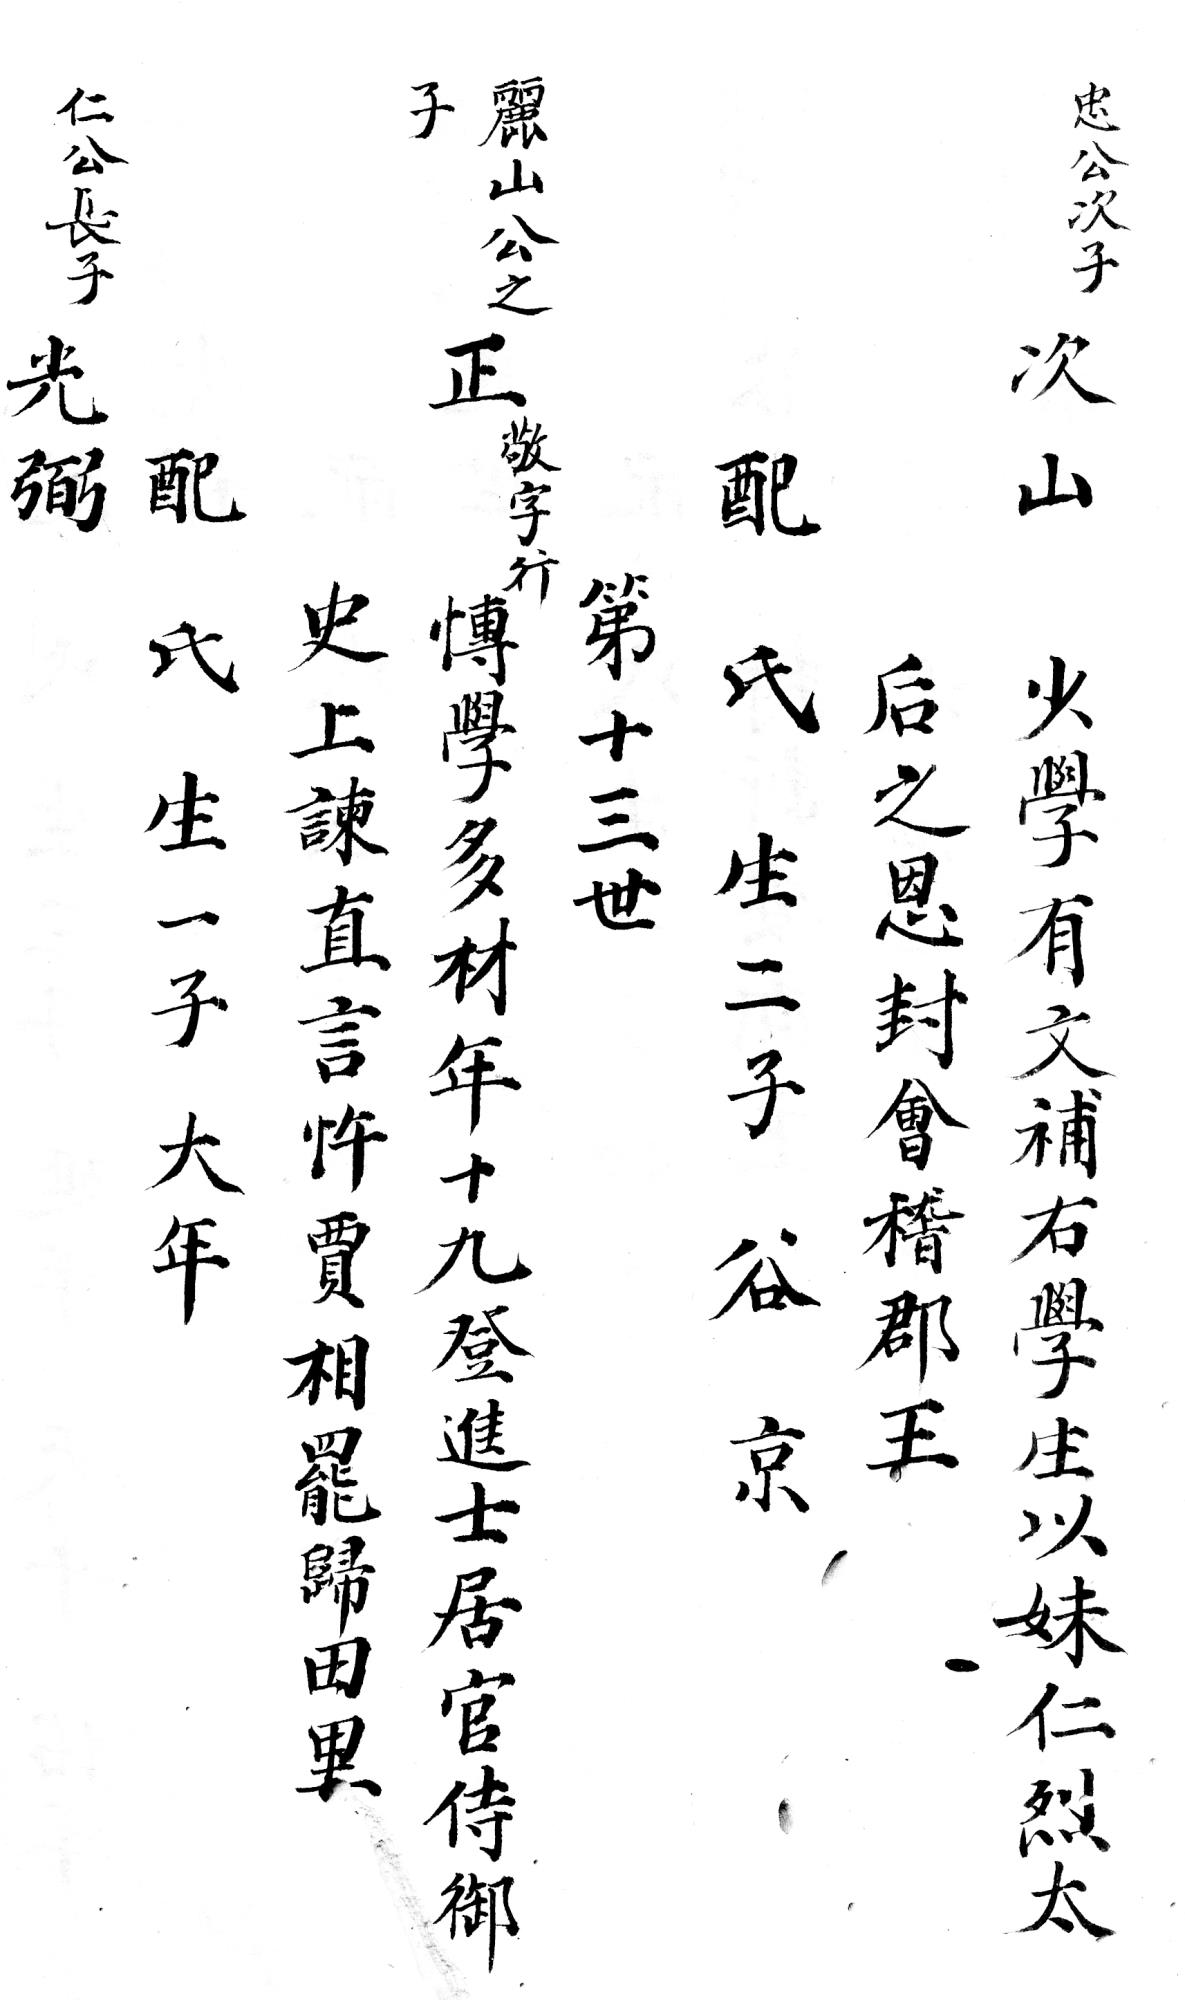 忠公次子
次山 少學有文補右學生以妹仁烈太
后之恩封會稽郡王
配 氏 生二子 谷 京
第十三世
麗山公之
子
正
敬字行
愽學多材年十九登進士居官侍御
史上諫直言忤賈相罷歸田里
配 氏 生一子 大年
仁公長子
光弼